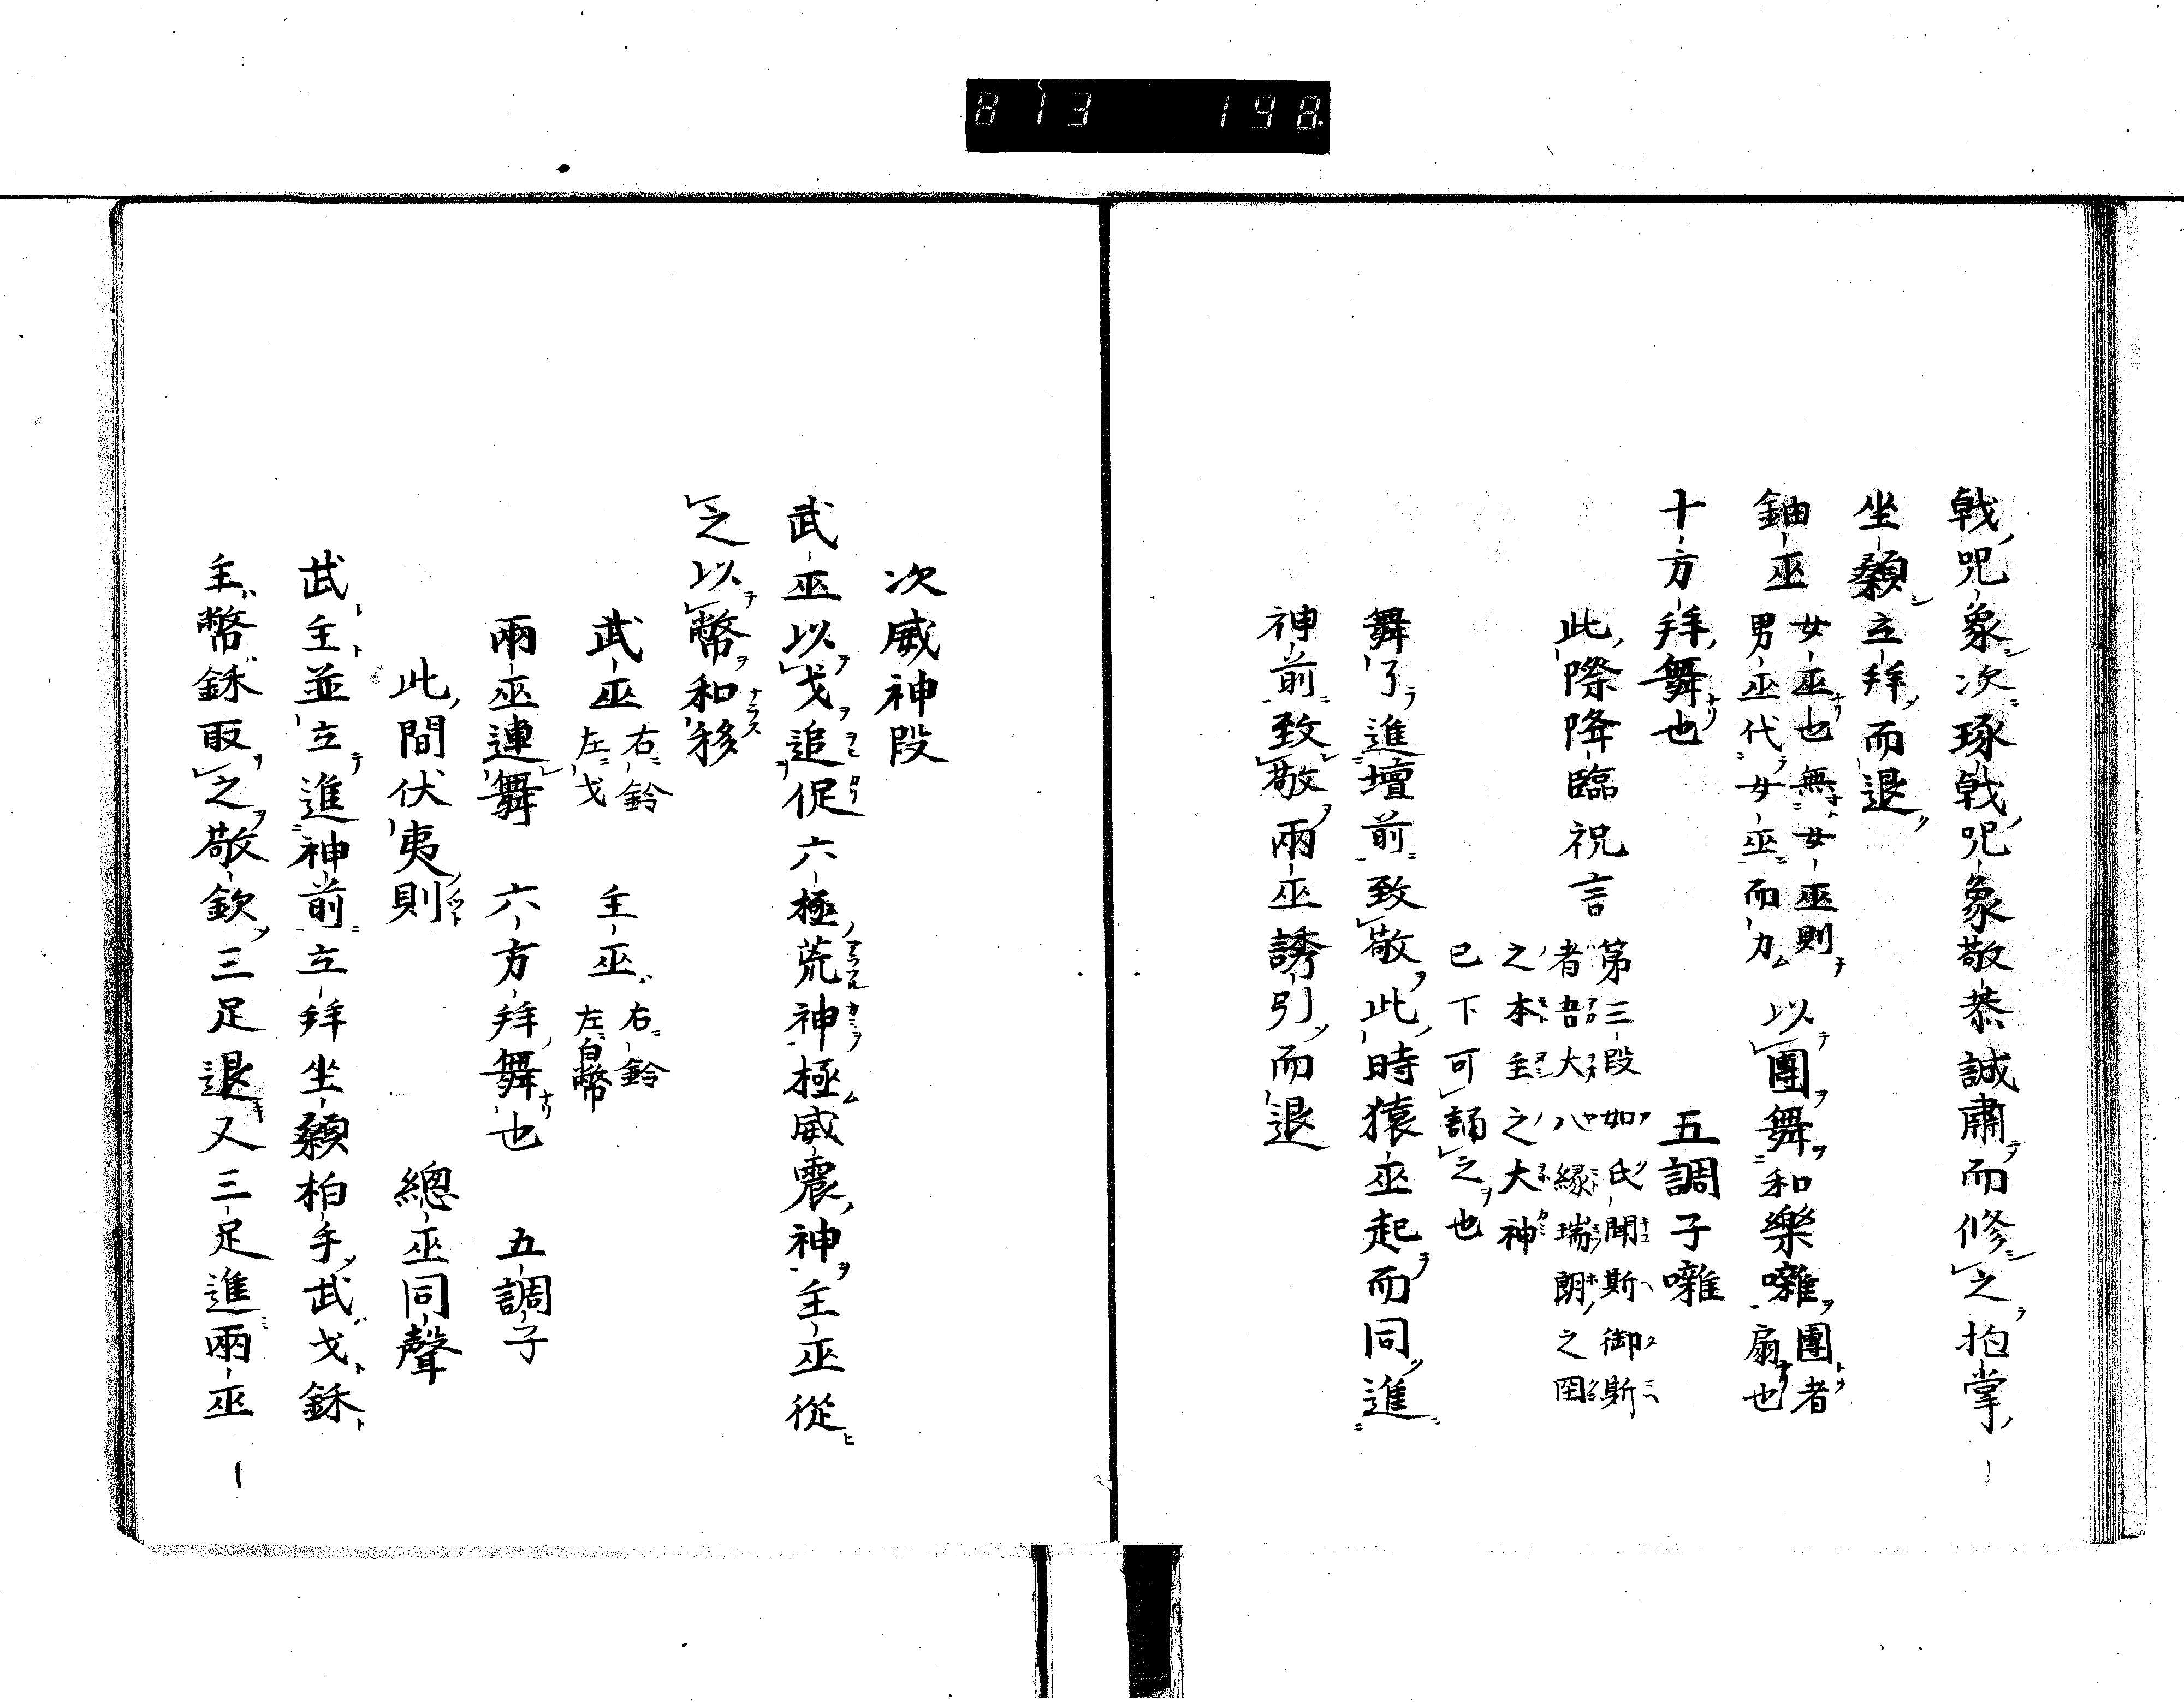 813 198
戟咒象次琢戟咒象敬恭誠肅而修之拍掌
坐顙立拜而退
鈿巫 女巫也無女巫則
男巫代女巫而力 以團舞和樂囃 團者
扇也
十方拜舞也 五調子囃
此際降臨祝言 第三段如氏聞斯御斯
者吾大八縁瑞朗之国
之本主之大神
已下可誦之也
舞了進壇前致敬此時猿巫起而同進
神前致敬兩巫誘引而退
次威神段
武巫以戈追促六極荒神極威震神主巫從
之以幣和移
武巫 右鈴
左戈 主巫 右鈴
左白幣
兩巫連舞 六方拜舞也 五調子
此間伏夷則 總巫同聲
武主並立進神前立拜坐顙拍手武戈
主幣取之敬欽三足退又三足進兩巫